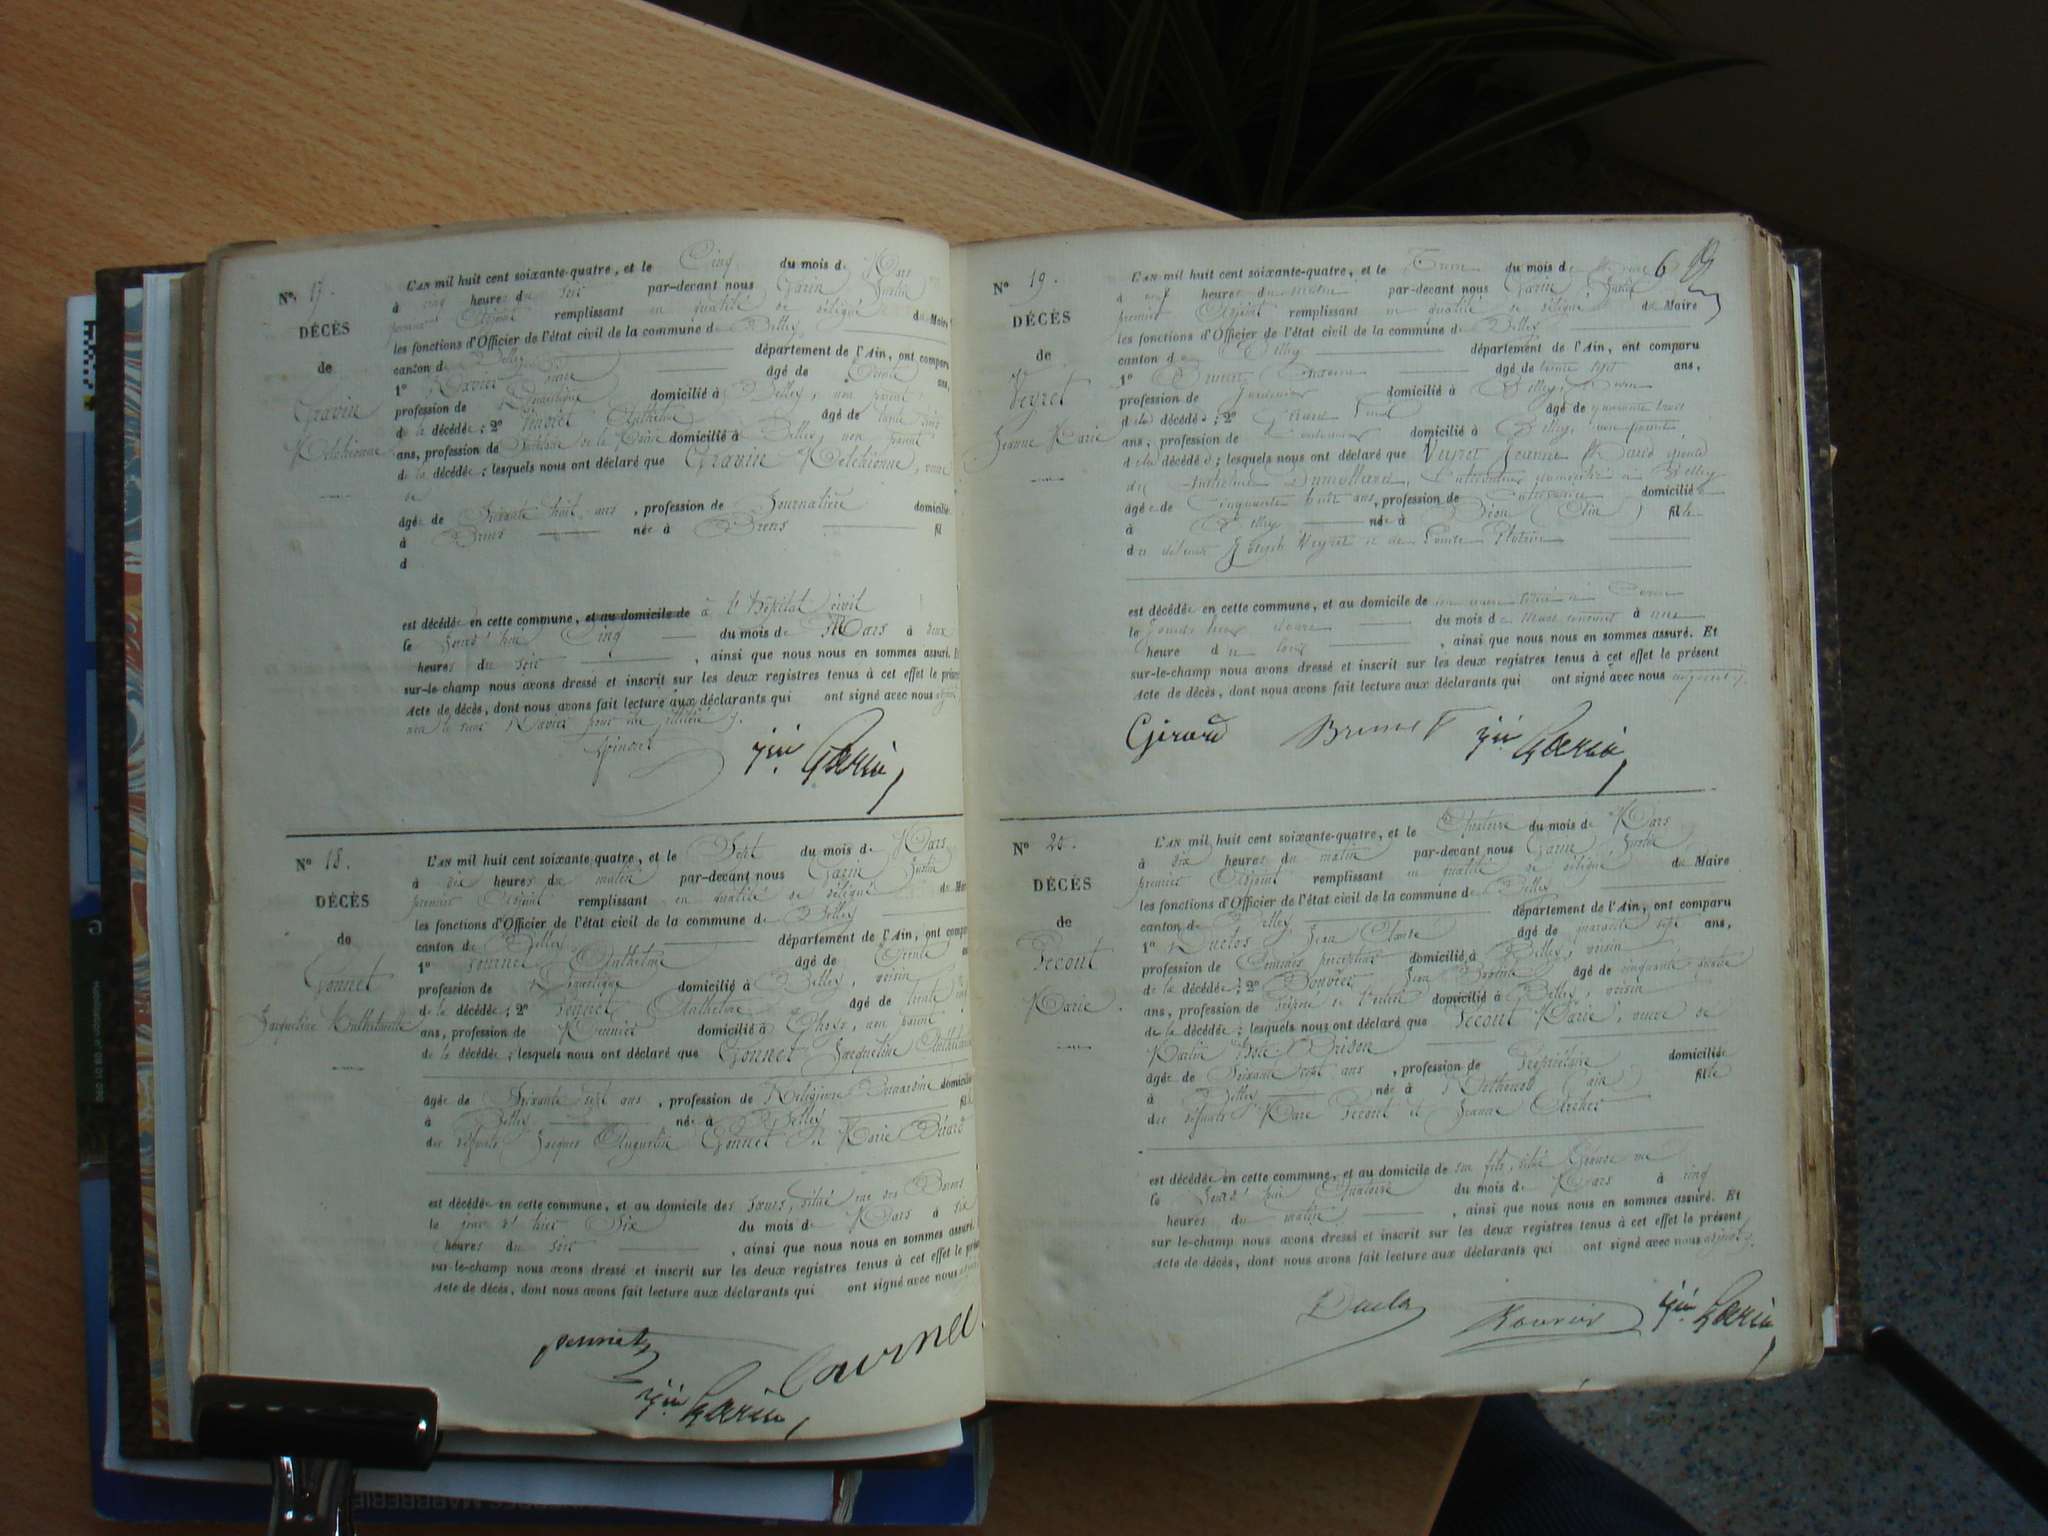 Nº 17.
DÉCÈS
de
Gravin
Melchionne
L'AN mil huit cent soixante-quatre, et le Cinq du mois de Mars
à cinq heures du soir par-devant nous Garin Justin
premier Adjoint remplissant en qualité de délégué du Maire
les fonctions d'Officier de l'état civil de la commune de Belley
canton de Belley département de l'Ain, ont comparu
1º Ravier âgé de Trente ans,
profession de Domestique domicilié à Belley, non parent
de la décédée; 2º Anthelme âgé de trente
ans, profession de de la Mairie domicilié à Belley, non parent
de la décédée; lesquels nous ont déclaré que Gravin Melchionne, veuve
de
âgée de Soixante huit ans, profession de Journalière domiciliée
à Brens née à Brens fil
d
est décédée en cette commune, et au domicile de à l'hôpital civil
le jourd'hui Cinq du mois de Mars à deux
heures du soir, ainsi que nous nous en sommes assuré. Et
sur-le-champ nous avons dressé et inscrit sur les deux registres tenus à cet effet le présent
Acte de décès, dont nous avons fait lecture aux déclarants qui ont signé avec nous adjoint
non le sieur Ravier pour être illitéré
jin Garin
Nº 18.
DÉCÈS
de
Gonnet
Jacqueline Anthelmette
L'AN mil huit cent soixante-quatre, et le Sept du mois de Mars
à dix heures du matin par-devant nous Garin Justin
premier Adjoint remplissant en qualité de délégué du Maire
les fonctions d'Officier de l'état civil de la commune de Belley
canton de Belley département de l'Ain, ont comparu
1º Anthelme âgé de Trente
profession de Domestique domicilié à Belley, voisin
de la décédée; 2º Anthelme âgé de trente
ans, profession de Meunier domicilié à non parent
de la décédée; lesquels nous ont déclaré que Gonnet Jacqueline
âgée de Soixante sept ans, profession de Religieuse Bernardine domiciliée
à Belley née à Belley fille
des défunts Jacques Augustin Gonnet et Marie
est décédée en cette commune, et au domicile des soeurs, situé rue des Barons
le jour d'hier Six du mois de Mars à six
heures du soir, ainsi que nous nous en sommes assuré.
sur-le-champ nous avons dressé et inscrit sur les deux registres tenus à cet effet le présent
Acte de décès, dont nous avons fait lecture aux déclarants qui ont signé avec nous
jin Garin
Nº 19.
DÉCÈS
de
Veyret
Jeanne Marie
6
L'AN mil huit cent soixante-quatre, et le du mois de Mars
à neuf heures du matin par-devant nous Garin Justin
premier Adjoint remplissant en qualité de délégué du Maire
les fonctions d'Officier de l'état civil de la commune de Belley
canton de Belley département de l'Ain, ont comparu
1º Brunet âgé de trente sept ans,
profession de Jardinier domicilié à Belley,
de la décédée; 2º Girard âgé de quarante trois
ans, profession de domicilié à Belley, non parent,
de la décédée; lesquels nous ont déclaré que Veyret Jeanne Marie
Anthelme Dumollard, Cultivateur domicilié à Belley
âgée de Cinquante huit ans, profession de Cultivatrice domiciliée
à Belley née à Béon (Ain) fille
des défunts Joseph Veyret et de
est décédée en cette commune, et au domicile de
le du mois de à une
heure du, ainsi que nous nous en sommes assuré. Et
sur-le-champ nous avons dressé et inscrit sur les deux registres tenus à cet effet le présent
Acte de décès, dont nous avons fait lecture aux déclarants qui ont signé avec nous adjoint
Girard Brunet jin Garin
Nº 20.
DÉCÈS
de
Pecout
Marie
L'AN mil huit cent soixante-quatre, et le Quatorze du mois de Mars
à dix heures du matin par-devant nous Garin Justin
premier Adjoint remplissant en qualité de délégué du Maire
les fonctions d'Officier de l'état civil de la commune de Belley
canton de Belley département de l'Ain, ont comparu
1º Duclos Jean Claude âgé de quarante sept ans,
profession de Commis percepteur domicilié à Belley, voisin
de la décédée; 2º Jean âgé de cinquante quatre
ans, profession de domicilié à Belley, voisin
de la décédée; lesquels nous ont déclaré que Pecout Marie, veuve de
Brison
âgée de Soixante sept ans, profession de Propriétaire domiciliée
à Belley née à (ain) fille
des défunts Marc Pecout et Jeanne
est décédée en cette commune, et au domicile de son fils, situé Grande rue
le jourd'hui Quatorze du mois de Mars à cinq
heures du matin, ainsi que nous nous en sommes assuré. Et
sur-le-champ nous avons dressé et inscrit sur les deux registres tenus à cet effet le présent
Acte de décès, dont nous avons fait lecture aux déclarants qui ont signé avec nous adjoint
jin Garin